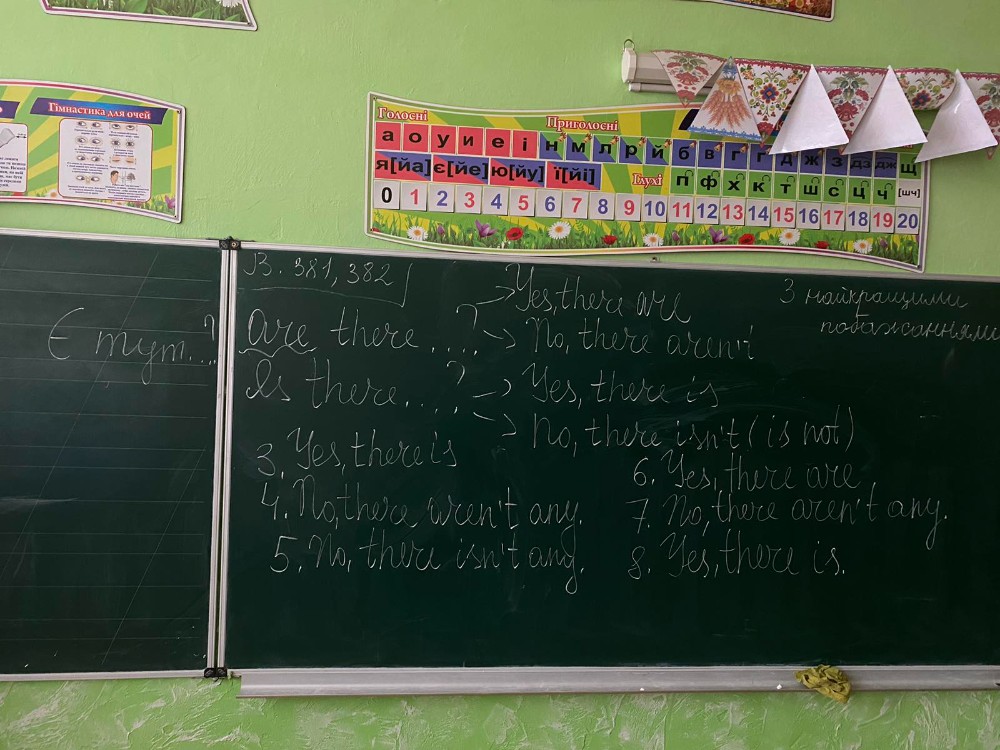 Гімнастика для очей
Голосні
Приголосні
а о у и е і н м л р й б в г ґ д ж з дз дж
щ
я[йа] є[йе] ю[йу] ї[йі]
Глухі
п ф х к т ш с ц ч [шч]
0 1 2 3 4 5 6 7 8 9 10 11 12 13 14 15 16 17 18 19 20
В. 381, 382
З найкращими
побажаннями
Є тут...?
Are there ....?
Yes, there are
No, there aren't
Is there....?
Yes, there is
No, there isn't (is not)
3. Yes, there is
4. No, there aren't any.
5. No, there isn't any.
6. Yes, there are
7. No, there aren't any.
8. Yes, there is.